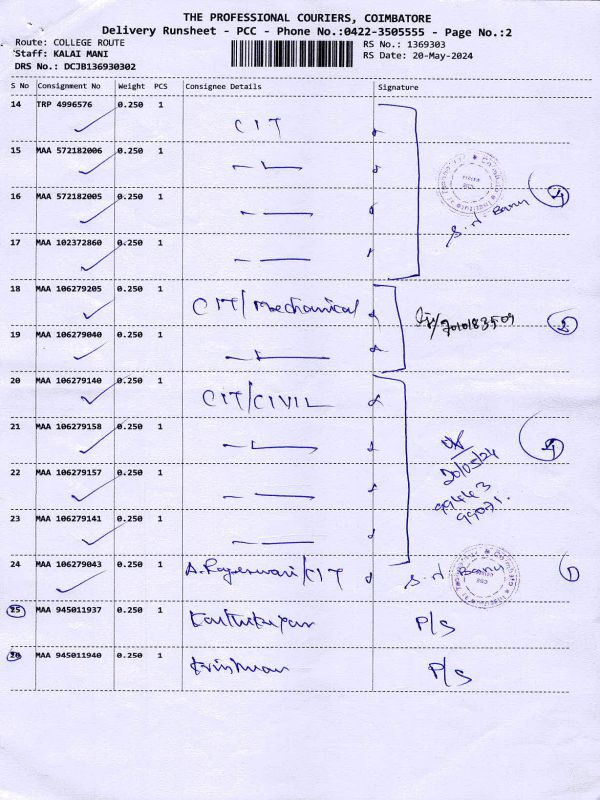 THE PROFESSIONAL COURIERS, COIMBATORE
Delivery Runsheet - PCC - Phone No.:0422-3505555 - Page No.:2
Route: COLLEGE ROUTE
Staff: KALAI MANI
DRS No.: DCJB136930302
RS No.: 1369303
RS Date: 20-May-2024
S No Consignment No Weight PCS Consignee Details Signature
14 TRP 4996576 0.250 1 CIT
15 MAA 572182006 0.250 1
16 MAA 572182005 0.250 1
17 MAA 102372860 0.250 1
S. d. Banu
4
18 MAA 106279205 0.250 1 CIT/Mechanical
19 MAA 106279040 0.250 1
2
20 MAA 106279140 0.250 1 CIT/CIVIL
21 MAA 106279158 0.250 1
22 MAA 106279157 0.250 1
23 MAA 106279141 0.250 1
20/05/24
99443
99071.
4
24 MAA 106279043 0.250 1 A. Rajeswari/CIT S. d Banu 1
25 MAA 945011937 0.250 1 P/S
26 MAA 945011940 0.250 1 Krishnan P/S